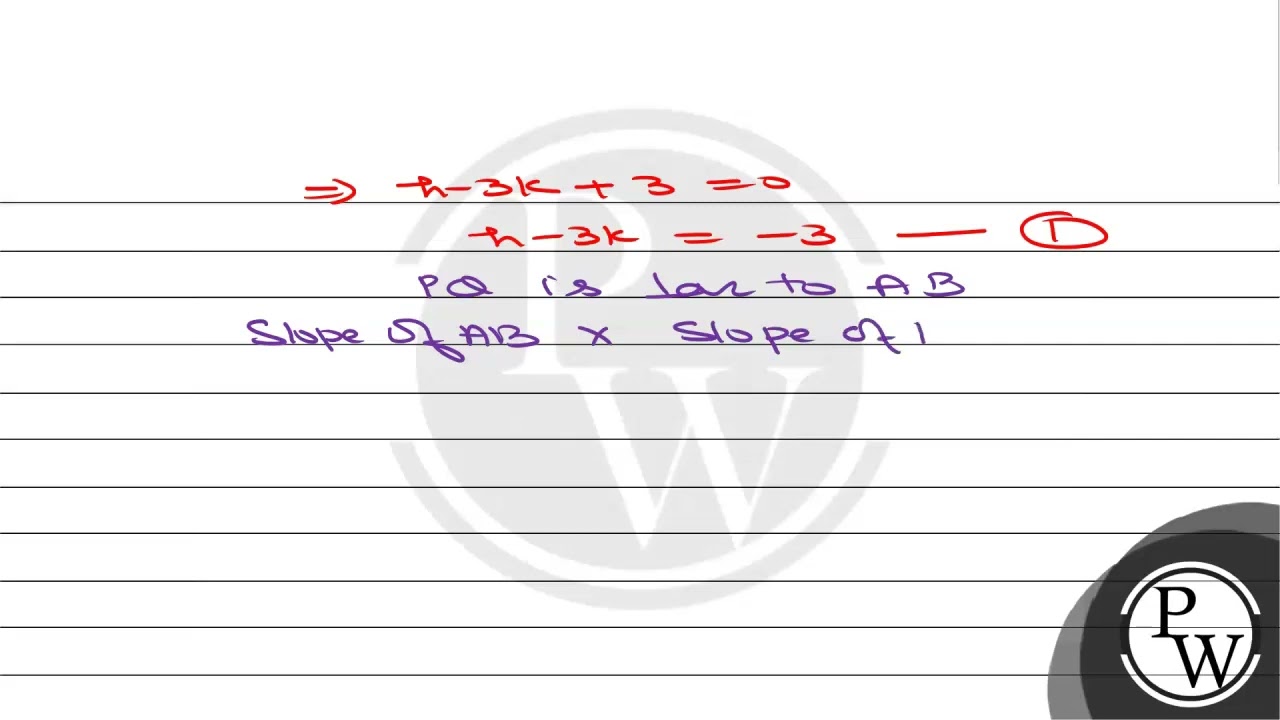 ⇒ h-3k+3=0
h-3k = -3 — ①
PQ is ⊥ar to AB
Slope of AB × Slope of P
W
P
W